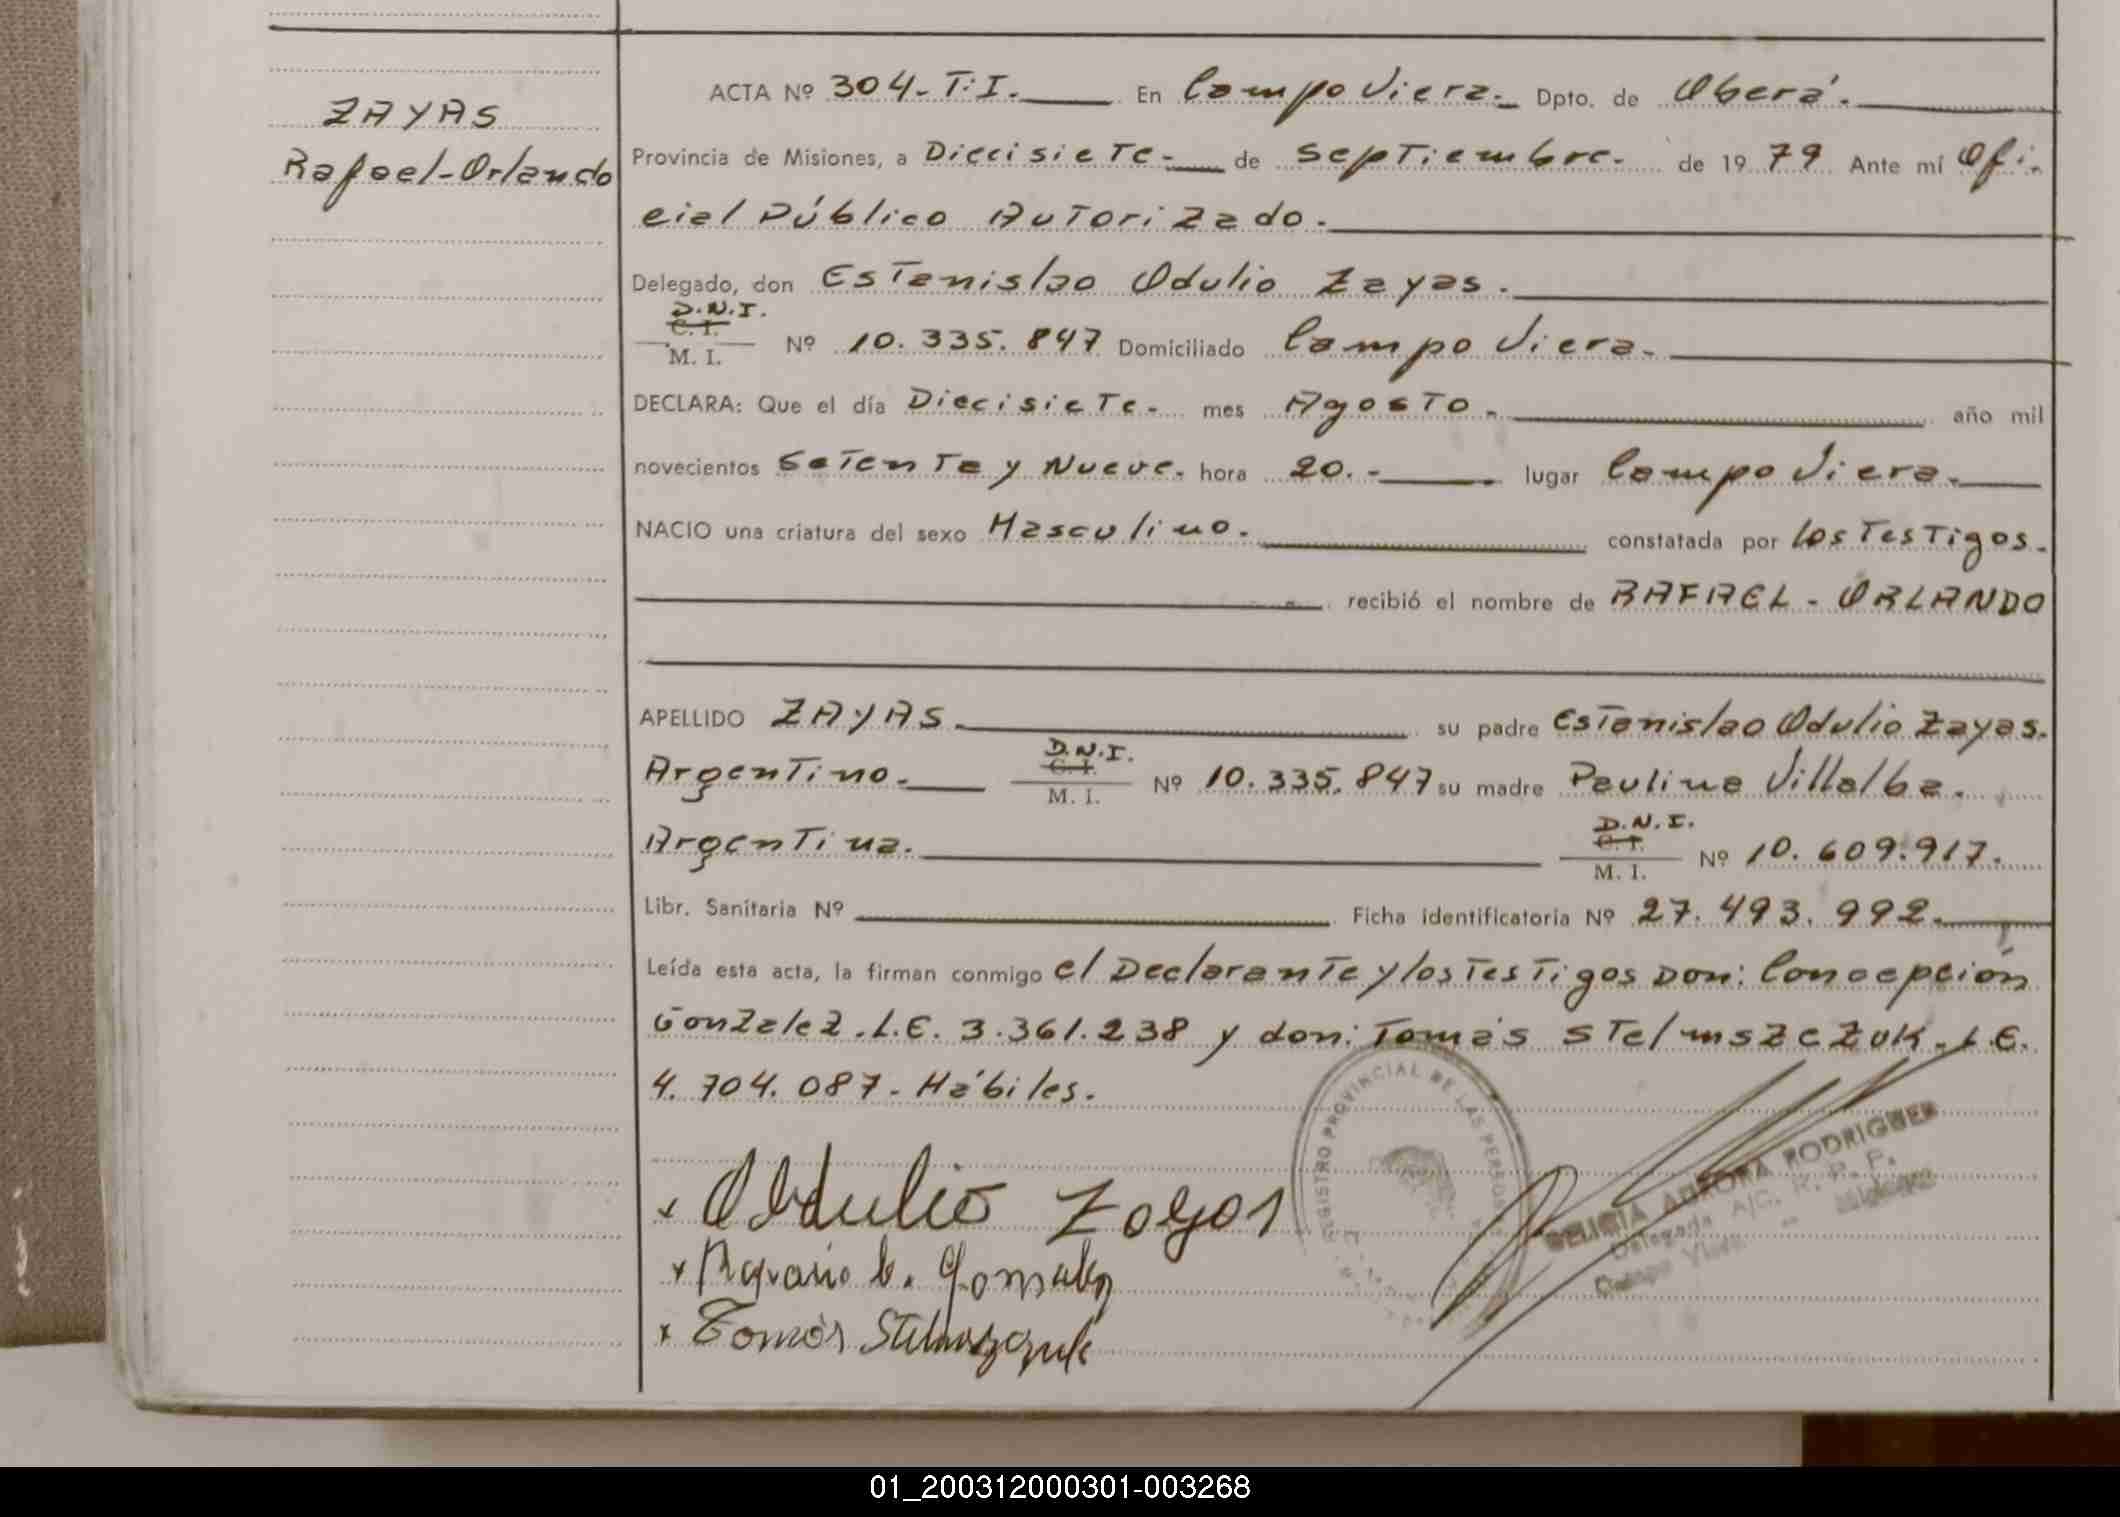 ZAYAS
Rafael-Orlando
ACTA Nº 304-T:I. En Campo Viera.- Dpto. de Oberá.
Provincia de Misiones, a Diecisiete- de Septiembre. de 1979 Ante mí Ofi-
cial Público Autorizado.
Delegado, don Estanislao Odulio Zayas.
D.N.I.
C. I.
M. I. Nº 10.335.847 Domiciliado Campo Viera.
DECLARA: Que el día Diecisiete- mes Agosto. año mil
novecientos Setenta y Nueve. hora 20.- lugar Campo Viera.
NACIO una criatura del sexo Masculino. constatada por los Testigos.
recibió el nombre de RAFAEL - ORLANDO
APELLIDO ZAYAS. su padre Estanislao Odulio Zayas.
D.N.I.
C. I.
Argentino. M. I. Nº 10.335.847 su madre Paulina Villalba.
D.N.I.
C. I.
Argentina. M. I. Nº 10.609.917.
Libr. Sanitaria Nº Ficha identificatoria Nº 27.493.992.
Leída esta acta, la firman conmigo el Declarante y los Testigos Don: Concepción
Gonzalez.L.E. 3.361.238 y don: Tomás Stelmszczuk.L.E.
4.704.087- Hábiles.
x Odulio Zayas
x C. Gonzalez
x Tomás
REGISTRO PROVINCIAL DE LAS PERSONAS
AURORA RODRIGUEZ
Delegada A/C. R. P. P.
Campo Viera - Misiones
01_200312000301-003268